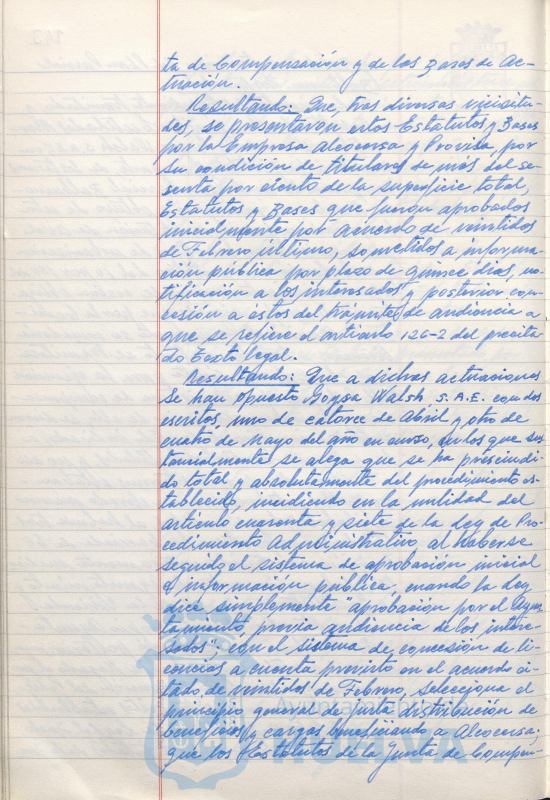 ta de Compensación y de las Bases de Ac-
tuación.
Resultando: Que, tras diversas vicisitu-
des, se presentaron estos Estatutos y Bases
por la Empresa Alcocersa y Provisa, por
su condición de titulares de más del se-
senta por ciento de la superficie total,
Estatutos y Bases que fueron aprobados
inicialmente por acuerdo de veintidos
de Febrero último, sometidos a informa-
ción pública por plazo de quince días, no-
tificación a los interesados y posterior con-
cesión a éstos del trámite de audiencia a
que se refiere el artículo 126-2 del precita-
do Texto legal.
Resultando: Que a dichas actuaciones
se han opuesto Goysa Walsh S.A.E. con dos
escritos, uno de catorce de Abril y otro de
cuatro de Mayo del año en curso, en los que sus-
tancialmente se alega que se ha prescindi-
do total y absolutamente del procedimiento es-
tablecido, incidiendo en la nulidad del
artículo cuarenta y siete de la Ley de Pro-
cedimiento Administrativo al haberse
seguido el sistema de aprobación inicial
e información pública, cuando la Ley
dice simplemente "aprobación por el Ayun-
tamiento, previa audiencia de los intere-
sados"; con el sistema de concesión de li-
cencias a cuenta previsto en el acuerdo ci-
tado de veintidos de Febrero, se lecciona el
principio general de justa distribución de
beneficios y cargas beneficiando a Alcocersa;
que los Estatutos de la Junta de Compen-